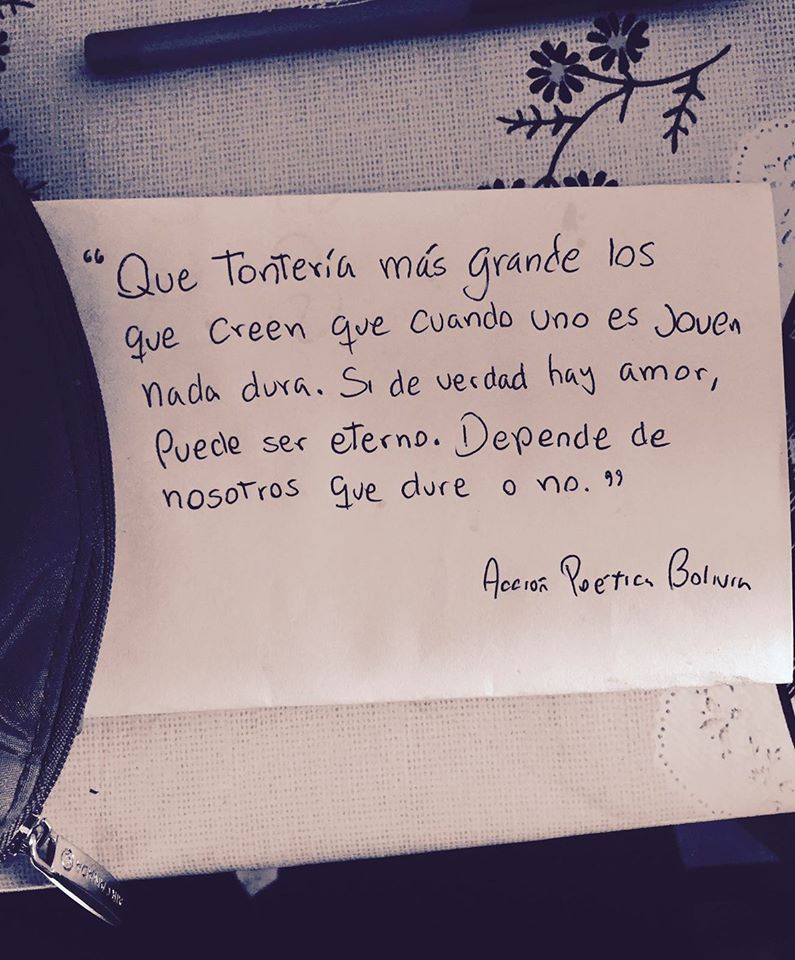 “Que Tontería más grande los
que creen que cuando uno es Joven
nada dura. Si de verdad hay amor,
Puede ser eterno. Depende de
nosotros que dure o no.”
Acción Poética Bolivia